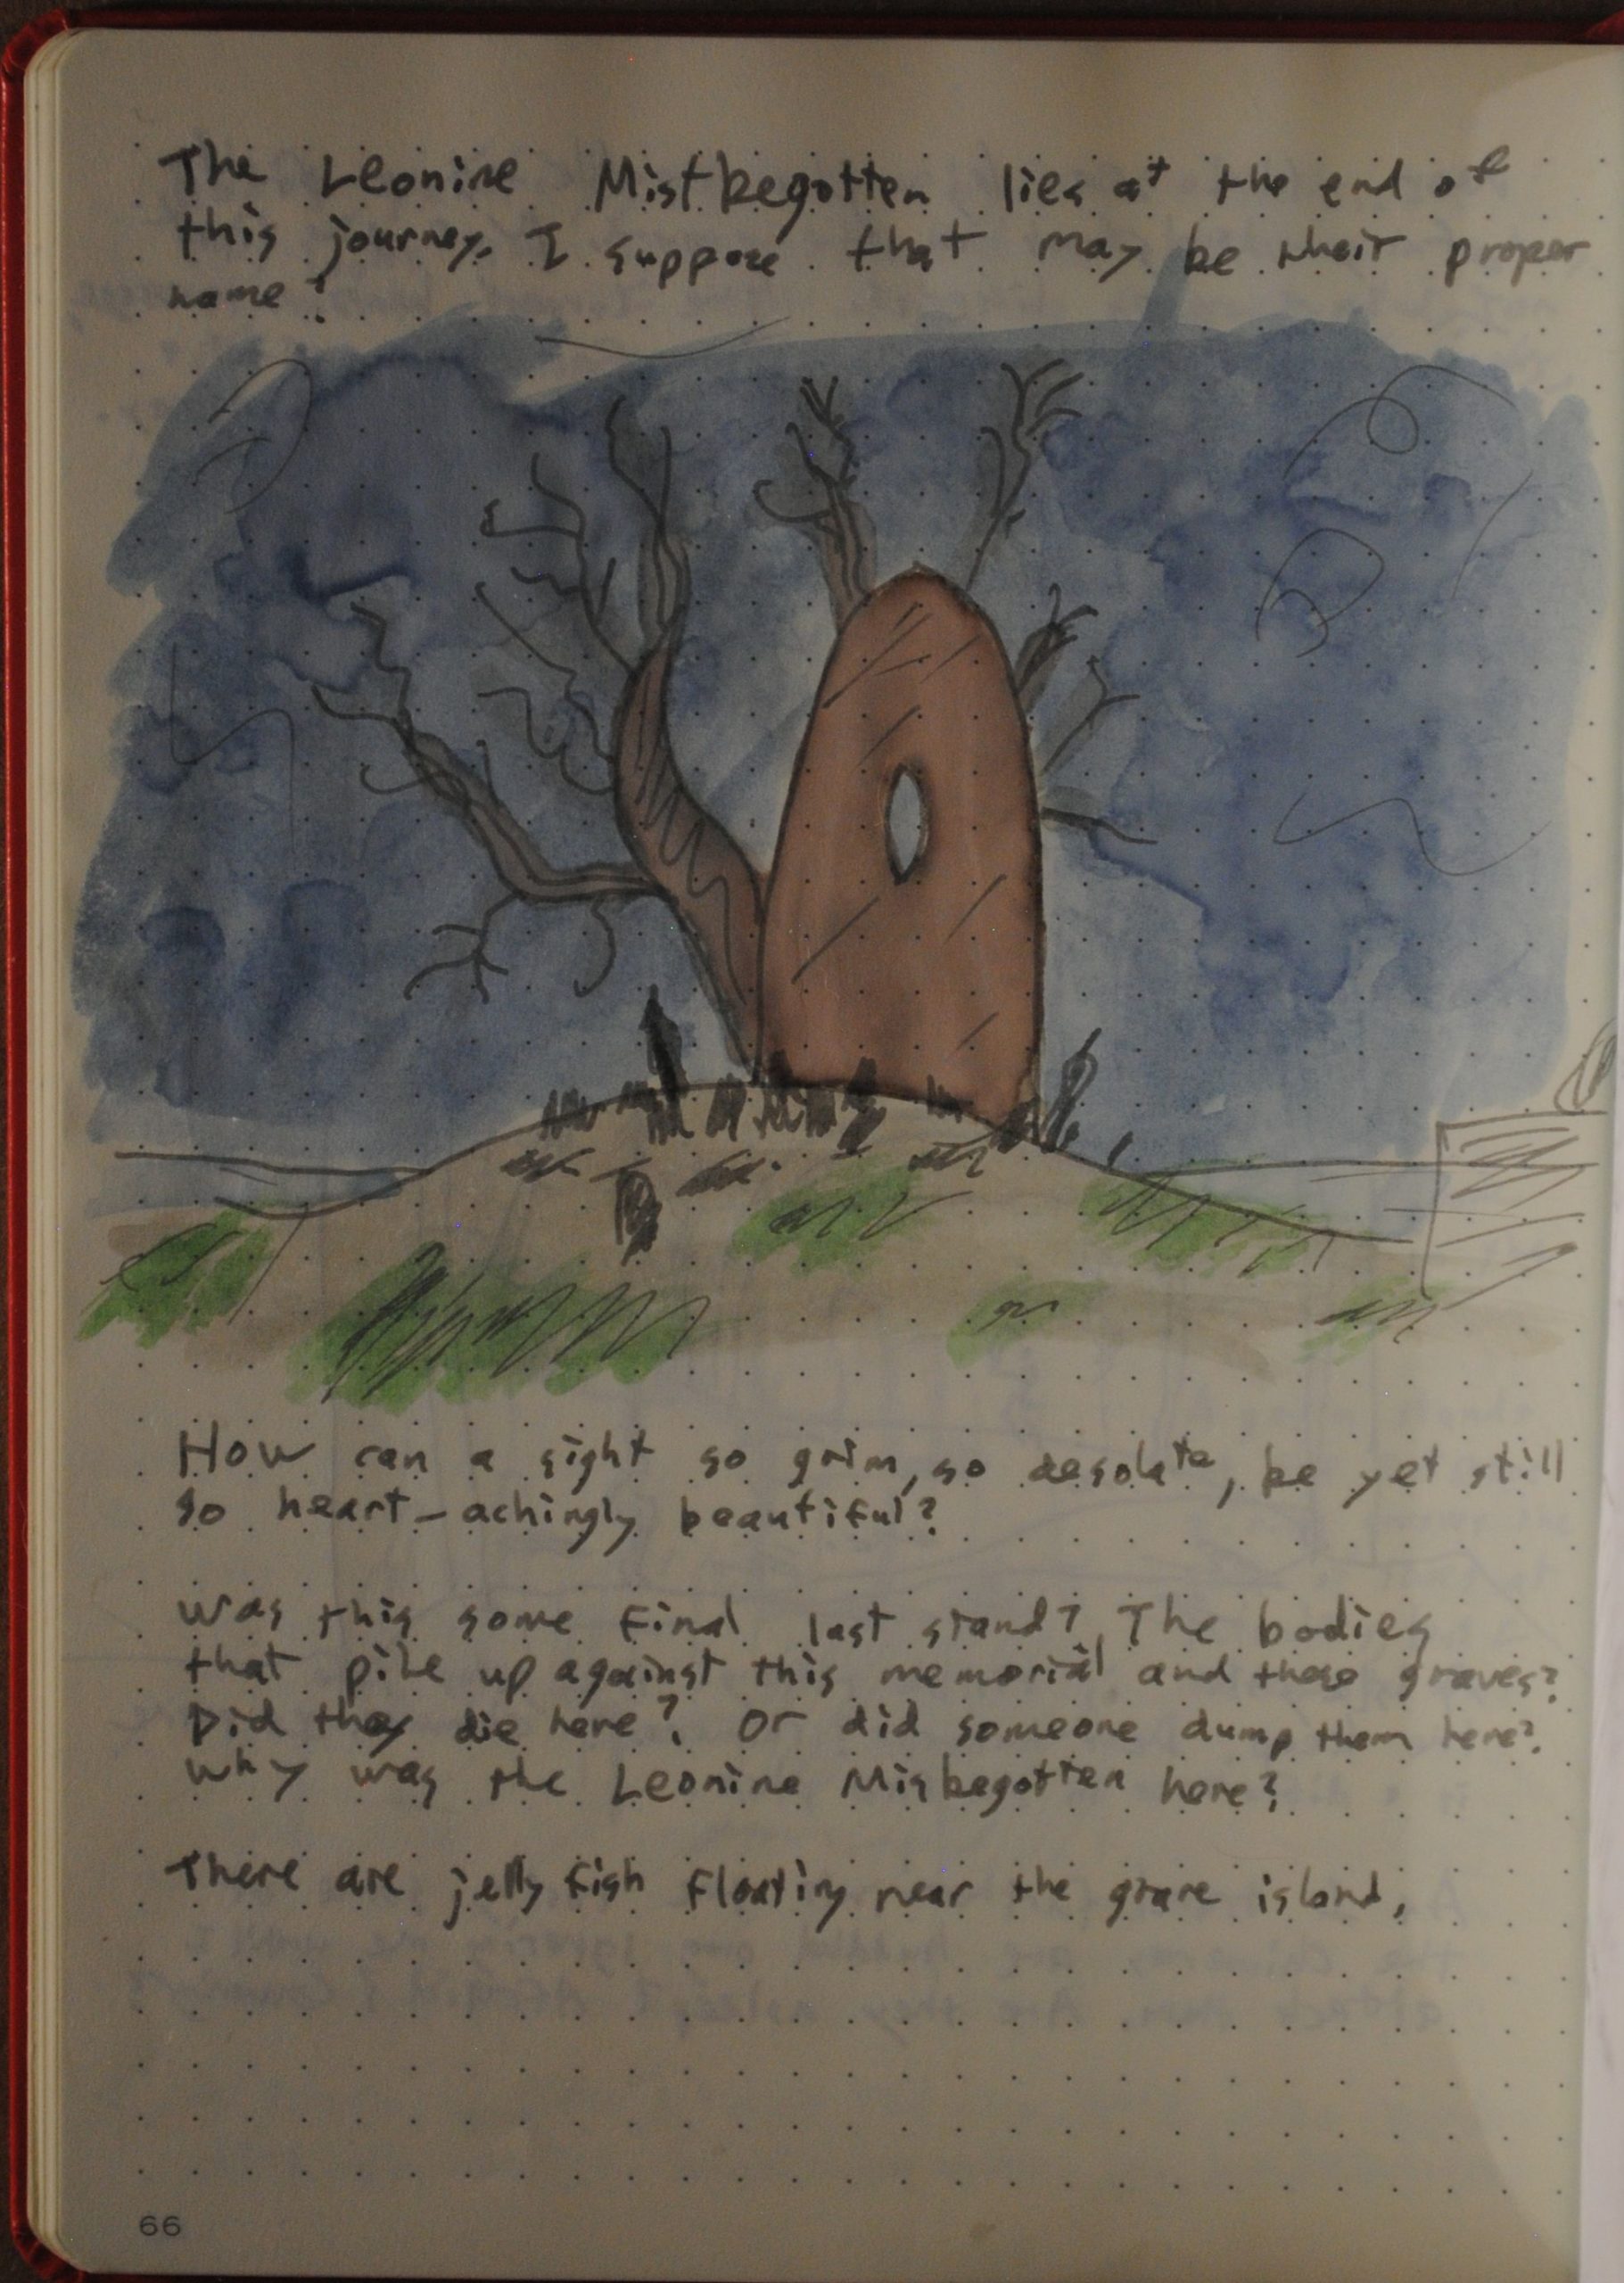 The Leonine Mistbegotten lies at the end of
this journey. I suppose that may be their proper
name?
How can a sight so grim, so desolate, be yet still
so heart-achingly beautiful?
Was this some final last stand? The bodies
that pile up against this memorial and these graves?
Did they die here? Or did someone dump them here?
Why was the Leonine Misbegotten here?
There are jelly fish floating near the grave island,
66